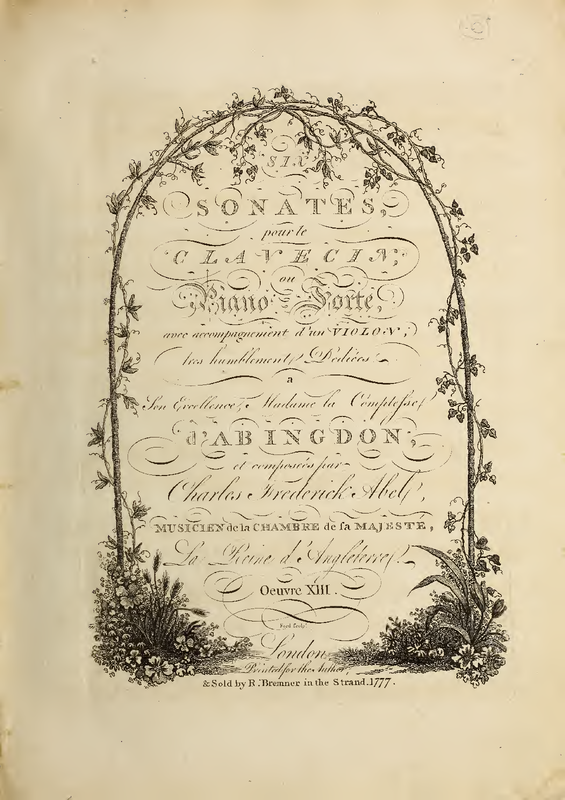 SIX
SONATES,
pour le
CLAVECIN,
ou
Piano Forte,
avec accompagnement d'un VIOLON,
tres humblement Dediées
a
Son Excellence, Madame la Comptesse,
d'ABINGDON,
et composées par
Charles Frederick Abel,
MUSICIEN de la CHAMBRE de sa MAJESTÉ,
La Reine d'Angleterre.
Oeuvre XIII.
London
Printed for the Author,
& Sold by R. Bremner in the Strand. 1777.